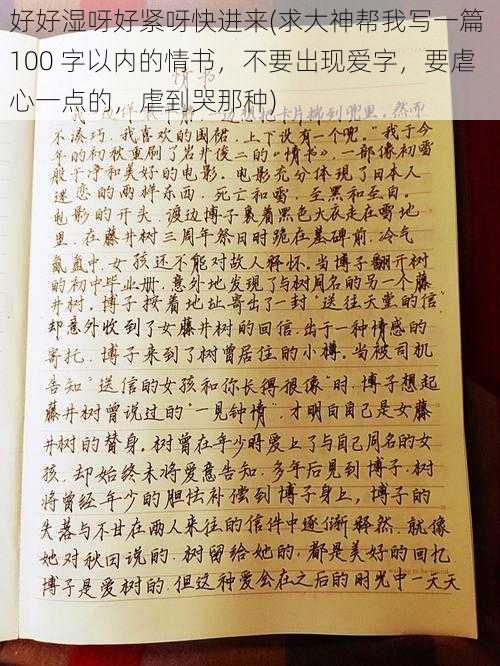 好好湿呀好紧呀快进来(求大神帮我写一篇
100 字以内的情书，不要出现爱字，要虐
心一点的，虐到哭那种)
情书
想把卡片揣到兜里。然而
不凑巧，我喜欢的围裙，上下没有一个兜。"我于今
年的初秋重刷了岩井俊二的《情书》，一部像初雪
般干净和美好的电影。电影充分体现了日本人
迷恋的两样东西，死亡和雪，至黑和至白。
电影的开头，渡边博子裹着黑色大衣走在雪地
里，在藤井树三周年祭日时跪在墓碑前，冷气
氤氲中，女孩还不能对故人释怀。当博子翻开树
的初中毕业册，意外地发现了与树同名的另一个藤
井树。博子按着地址寄出了一封"送往天堂的信"
却意外收到了女藤井树的回信。出于一种情感的
寄托，博子来到了树曾居住的小樽。当被司机
告知"送信的女孩和你长得很像"时，博子想起
藤井树曾说过的"一见钟情"，才明白自己是女藤
井树的替身。树曾在年少时爱上了与自己同名的女
孩，却始终未将爱意告知，多年后见到博子，树
将曾经年少的胆怯补偿到博子身上，博子的
失落与不甘在两人来往的信件中逐渐释然，就像
她对秋田说的，树留给她的，都是美好的回忆
博子是爱树的，但这种爱会在之后的时光中一天天